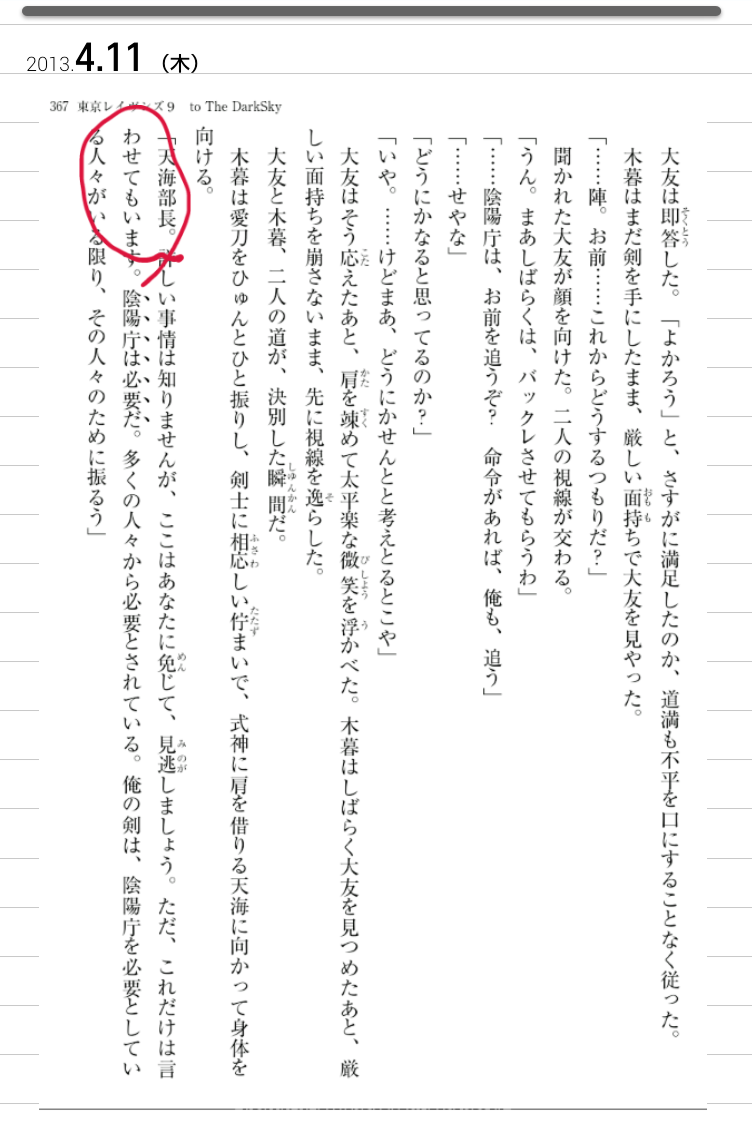 2013.4.11（木）
367 東京レイヴンズ９ to The DarkSky
大友は即答した。「よかろう」と、さすがに満足したのか、道満も不平を口にすることなく従った。
木暮はまだ剣を手にしたまま、厳しい面持ちで大友を見やった。
「……陣。お前……これからどうするつもりだ？」
聞かれた大友が顔を向けた。二人の視線が交わる。
「うん。まあしばらくは、バックレさせてもらうわ」
「……陰陽庁は、お前を追うぞ？　命令があれば、俺も、追う」
「……せやな」
「どうにかなると思ってるのか？」
「いや。……けどまあ、どうにかせんとと考えとるとこや」
大友はそう応えたあと、肩を竦めて太平楽な微笑を浮かべた。木暮はしばらく大友を見つめたあと、厳
しい面持ちを崩さないまま、先に視線を逸らした。
大友と木暮、二人の道が、決別した瞬間だ。
木暮は愛刀をひゅんとひと振りし、剣士に相応しい佇まいで、式神に肩を借りる天海に向かって身体を
向ける。
「天海部長。詳しい事情は知りませんが、ここはあなたに免じて、見逃しましょう。ただ、これだけは言
わせてもいます。陰陽庁は必要だ。多くの人々から必要とされている。俺の剣は、陰陽庁を必要としてい
る人々がいる限り、その人々のために振るう」